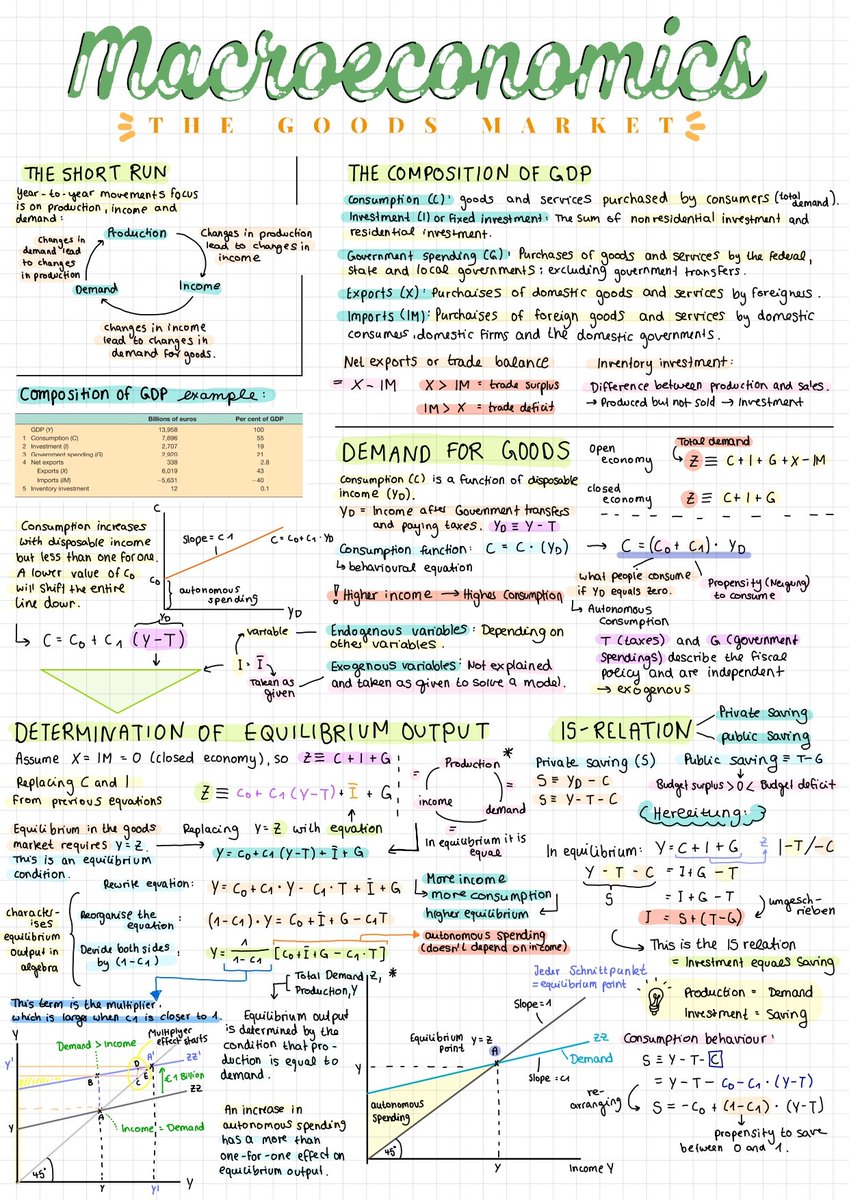 Macroeconomics
THE GOODS MARKET
THE SHORT RUN
Year-to-year movements focus
is on production, income and
demand:
Production
Changes in production
lead to changes in
income
Income
changes in income
lead to changes in
demand for goods.
Demand
Changes in
demand lead
to changes
in production
THE COMPOSITION OF GDP
Consumption (C): goods and services purchased by consumers (total demand).
Investment (I) or Fixed investment: The sum of nonresidential investment and
residential investment.
Government spending (G): Purchases of goods and services by the federal,
state and local governments: excluding government transfers.
Exports (X): Purchaises of domestic goods and services by foreigners.
Imports (IM): Purchaises of foreign goods and services by domestic
consumers, domestic firms and the domestic governments.
Net exports or trade balance
= X - IM
X > IM = trade surplus
IM > X = trade deficit
Inventory investment:
Difference between production and sales.
→ Produced but not sold → Investment
Composition of GDP example:
Billions of euros Per cent of GDP
GDP (Y) 13,958 100
1 Consumption (C) 7,696 55
2 Investment (I) 2,707 19
3 Government spending (G) 2,920 21
4 Net exports 338 2.8
Exports (X) 6,019 43
Imports (IM) −5,631 −40
5 Inventory investment 12 0.1
DEMAND FOR GOODS
Consumption (C) is a function of disposable
income (YD).
YD = Income after Government transfers
and paying taxes. YD ≡ Y - T
Consumption function: C = C · (YD) → C = (C0 + C1) · YD
↳ behavioural equation
! Higher income → Highes Consumption
Open
economy
Total demand
Z ≡ C + I + G + X - IM
closed
economy
Z ≡ C + I + G
what people consume
if YD equals zero.
↳ Autonomous
Consumption
Propensity (Neigung)
to consume
Endogenous variables: Depending on
other variables.
Exogenous variables: Not explained
and taken as given to solve a model.
T (taxes) and G (government
spendings) describe the fiscal
policy and are independent
→ exogenous
Consumption increases
with disposable income
but less than one for one.
A lower value of C0
will shift the entire
line down.
C
slope = C1
C = C0 + C1 · YD
C0
autonomous
spending
YD
YD
↳ C = C0 + C1 (Y-T)
variable
I = Ī
Taken as
given
DETERMINATION OF EQUILIBRIUM OUTPUT
Assume X = IM = 0 (closed economy), so Z ≡ C + I + G
Replacing C and I
From previous equations
Z ≡ C0 + C1 (Y-T) + Ī + G
Equilibrium in the goods
market requires Y = Z.
This is an equilibrium
condition.
Replacing Y = Z with equation
Y = C0 + C1 (Y-T) + Ī + G
Production *
=
income
=
demand
=
In equilibrium it is
equal
Rewrite equation: Y = C0 + C1 · Y - C1 · T + Ī + G
More income
more consumption
higher equilibrium
characterises
equilibrium
output in
algebra
Reorganise the
equation: (1-C1) · Y = C0 + Ī + G - C1T
Devide both sides
by (1-C1) : Y = 1 / 1-C1 [C0 + Ī + G - C1 · T]
autonomous spending
(doesn't depend on income)
This term is the multiplier,
which is large when C1 is closer to 1.
IS-RELATION
Private saving
public saving
Private saving (S)
S ≡ YD - C
S ≡ Y - T - C
Public saving ≡ T-G
Budget surplus > 0 < Budget deficit
(Herleitung:)
In equilibrium: Y = C + I + G Z |-T/-C
Y - T - C = I + G - T
S = I + G - T
I = S + (T-G)
umgeschrieben
This is the IS relation
= Investment equals Saving
Production = Demand
Investment = Saving
Consumption behaviour:
S ≡ Y - T - C
= Y - T - C0 - C1 · (Y-T)
rearranging
S = -C0 + (1-C1) · (Y-T)
propensity to save
between 0 and 1.
Y
Y'
Demand > Income
Multiplyer
effect starts
A'
ZZ'
D
E
C
B
€1 Billion
ZZ
A
Y
Income = Demand
45°
Y
Y'
Y
Equilibrium output
is determined by the
condition that production
is equal to
demand.
An increase in
autonomous spending
has a more than
one-for-one effect on
equilibrium output.
Total Demand Z, *
Production, Y
Jeder Schnittpunkt
= equilibrium point
Slope = 1
Equilibrium
Point
Y = Z
A
ZZ
Demand
Slope = C1
Y
autonomous
spending
45°
Y
Income Y